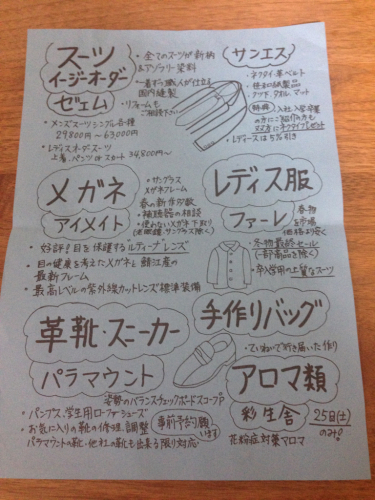 スーツ
イージーオーダー
ゼェム
・全てのスーツが新柄
・一着ずつ職人が仕立
国内縫製
・リフォームも
ご相談下さい
・メンズスーツシングル各種
29,800円〜63,000円
・レディスオーダースーツ
上着、パンツorスカート 34,800円〜
サンエス
・ネクタイ・革ベルト
・タオル、マット
特典
入社入学卒業
の方に
ネクタイプレゼント
・レディースは5%引き
メガネ
アイメイト
・サングラス
メガネフレーム
春の新作多数
・補聴器の相談
・使わないメガネ下取り
・好評!目を保護する"ルティーナ"レンズ
・目の健康を考えたメガネと鯖江産の
最新フレーム
・最高レベルの紫外線カットレンズ標準装備
レディス服
ファーレ
春物
を市場
価格より安く
・冬物最終セール
(一部商品を除く)
・卒入学用の上質なスーツ
革靴・スニーカー
パラマウント
姿勢のバランスチェックボードスコープ
・パンプス、学生用ローファシューズ
・お気に入りの靴の修理、調整
パラマウントの靴・他社の靴も出来る限り対応
事前予約願
います
手作りバッグ
・ていねいで行き届いた作り
アロマ類
彩生舎
25日(土)
のみ!
花粉症対策アロマ